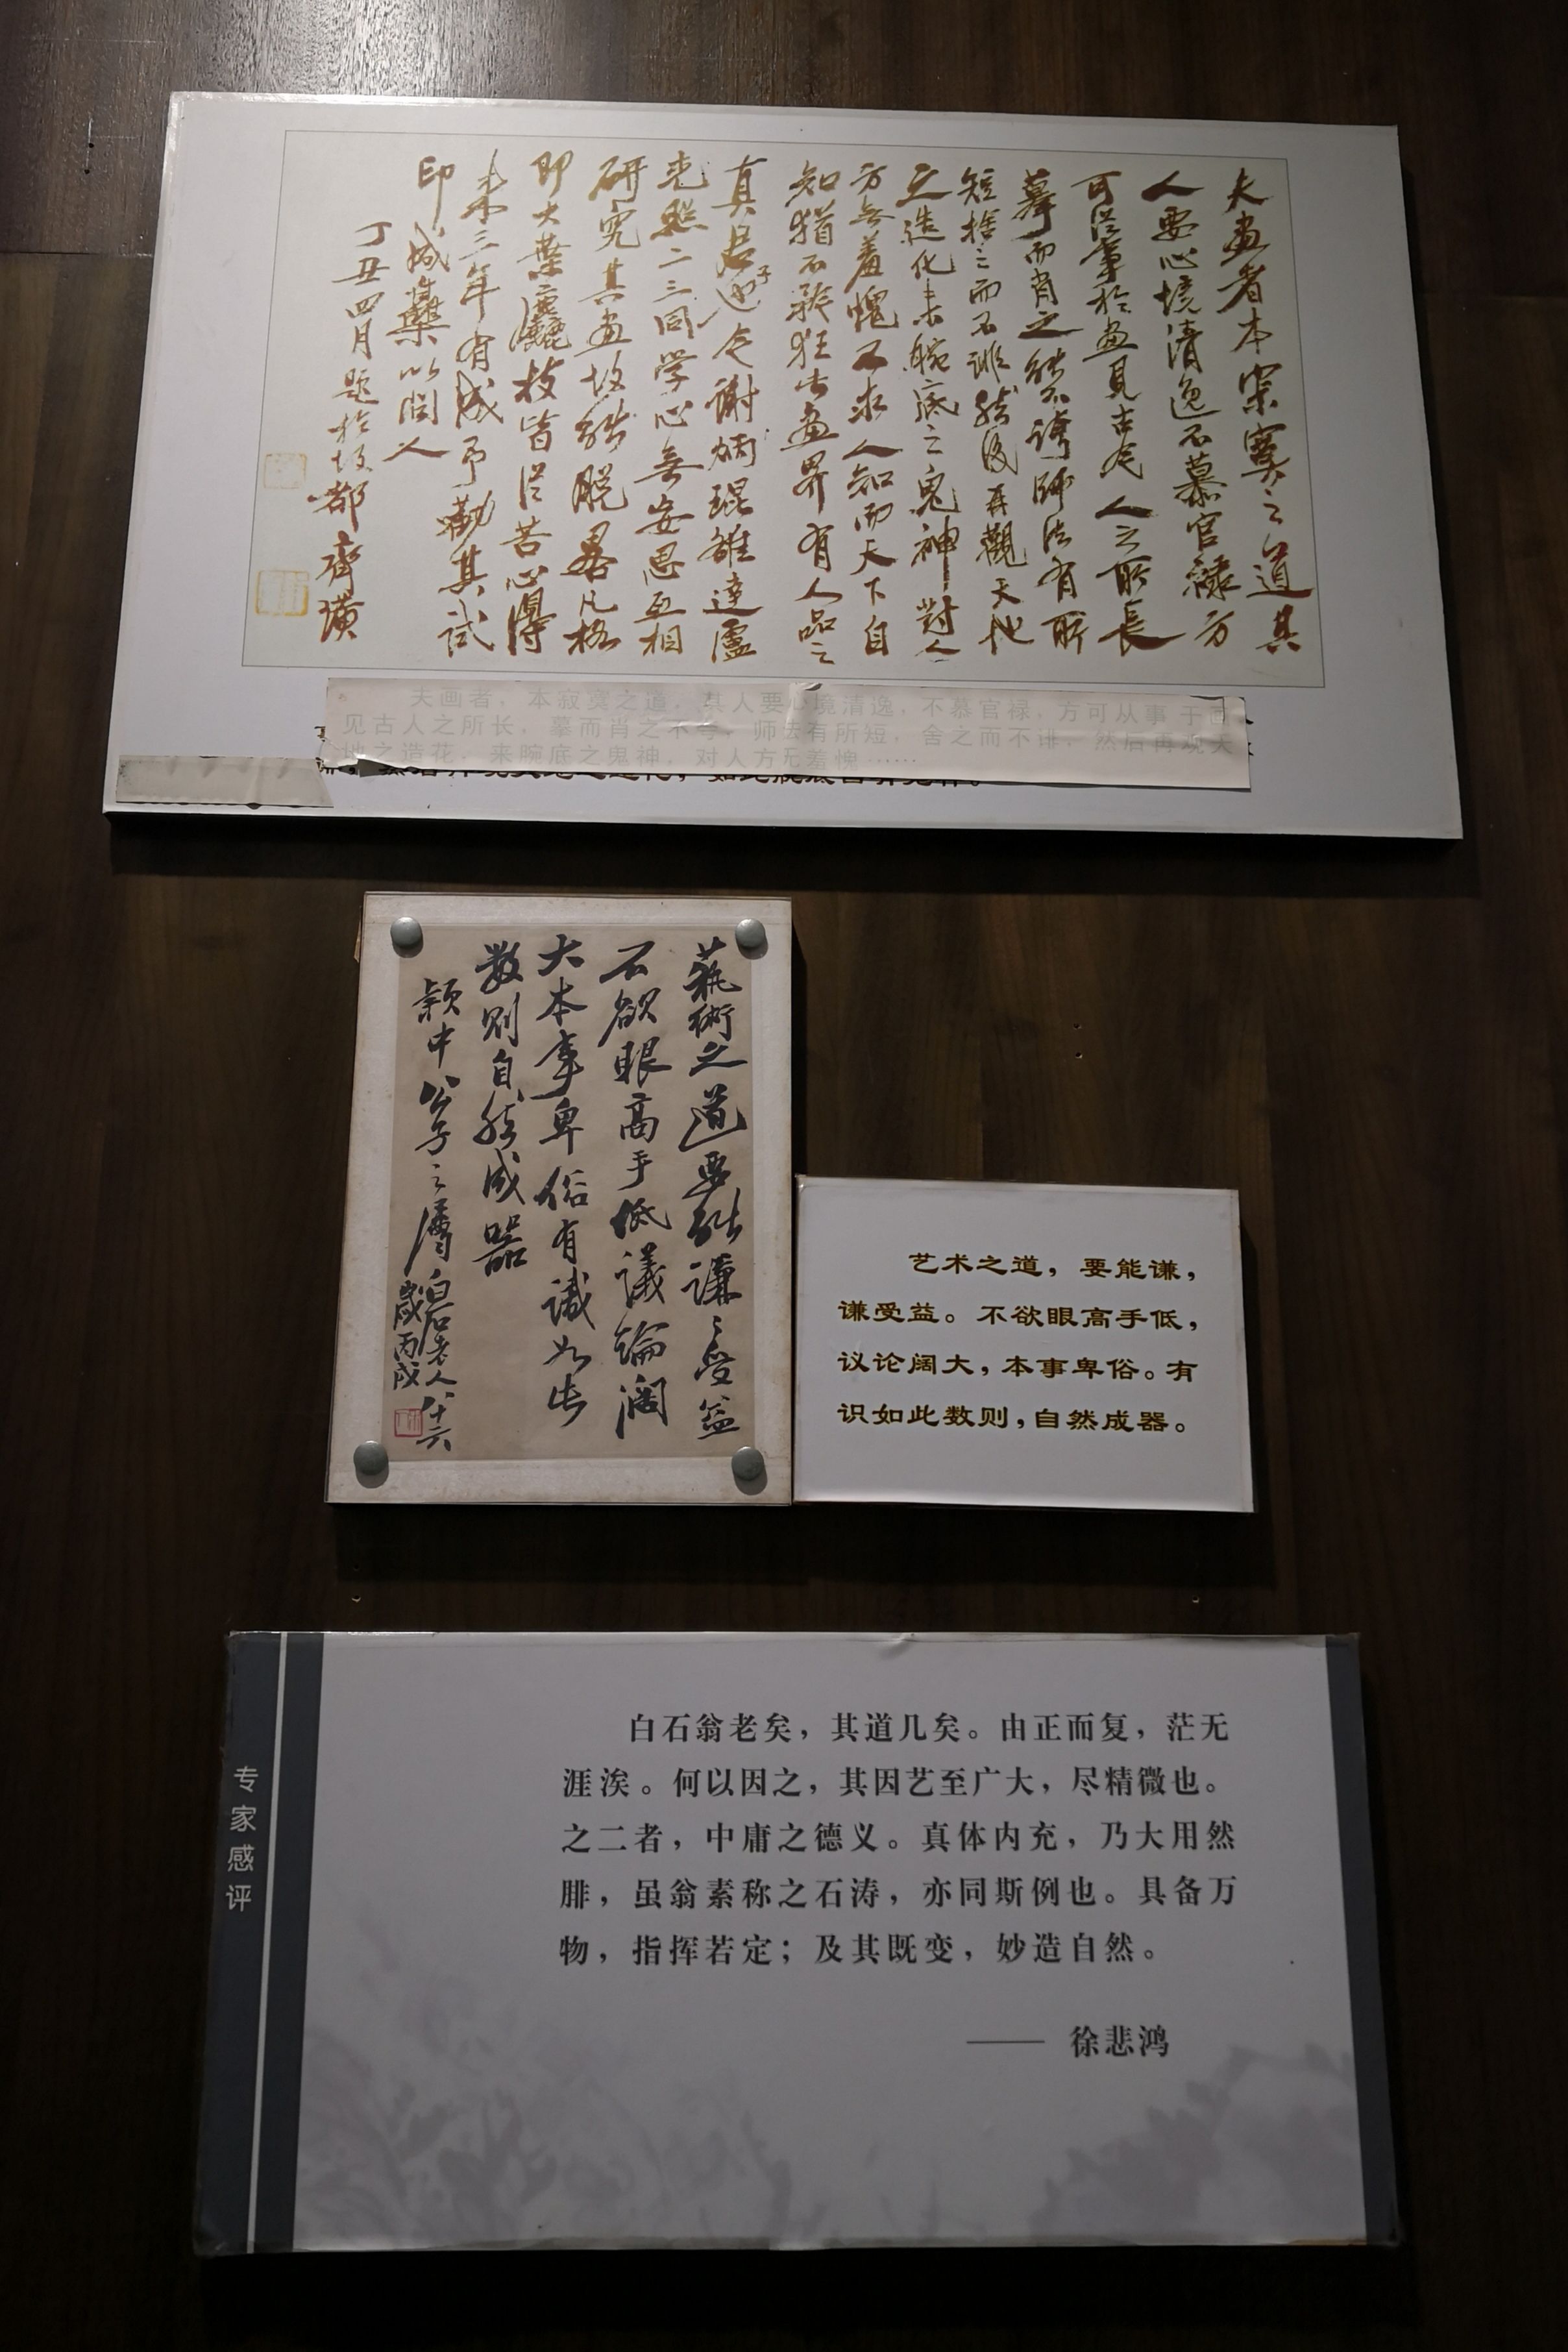 夫畫者本寂寞之道其
人要心境清逸不慕官祿方
可從事於畫見古今人之所長
摹而肖之能不誇師法有所
短捨之而不誹然後再觀天地
之造化來腕底之鬼神對人
方無羞愧不求人知而天下自
知猶不矜狂此畫界有人品之
真君子也今謝炳琨雒達盧
光照二三同學心無妄思互相
研究其畫故能脫畧凡格
即大葉麤枝皆從苦心得
來三年有成予勸其試
印成集以問人
丁丑四月題於故都齊璜
夫画者，本寂寞之道，其人要心境清逸，不慕官禄，方可从事于画
见古人之所长，摹而肖之不夸，师法有所短，舍之而不诽，然后再观天
地之造花，来腕底之鬼神，对人方无羞愧……
藝術之道要能謙謙受益
不欲眼高手低議論闊
大本事卑俗有識如此
數則自然成器
穎中公子之屬白石老人八十六
歲丙戌
艺术之道，要能谦，
谦受益。不欲眼高手低，
议论阔大，本事卑俗。有
识如此数则，自然成器。
专家感评
白石翁老矣，其道几矣。由正而复，茫无
涯涘。何以因之，其因艺至广大，尽精微也。
之二者，中庸之德义。真体内充，乃大用然
腓，虽翁素称之石涛，亦同斯例也。具备万
物，指挥若定；及其既变，妙造自然。
—— 徐悲鸿